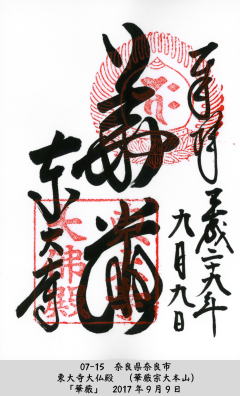 奉拝
平成二十九年
九月九日
華厳
東大寺
大佛殿
07-15 奈良県奈良市
東大寺大仏殿 (華厳宗大本山)
「華厳」 2017年9月9日